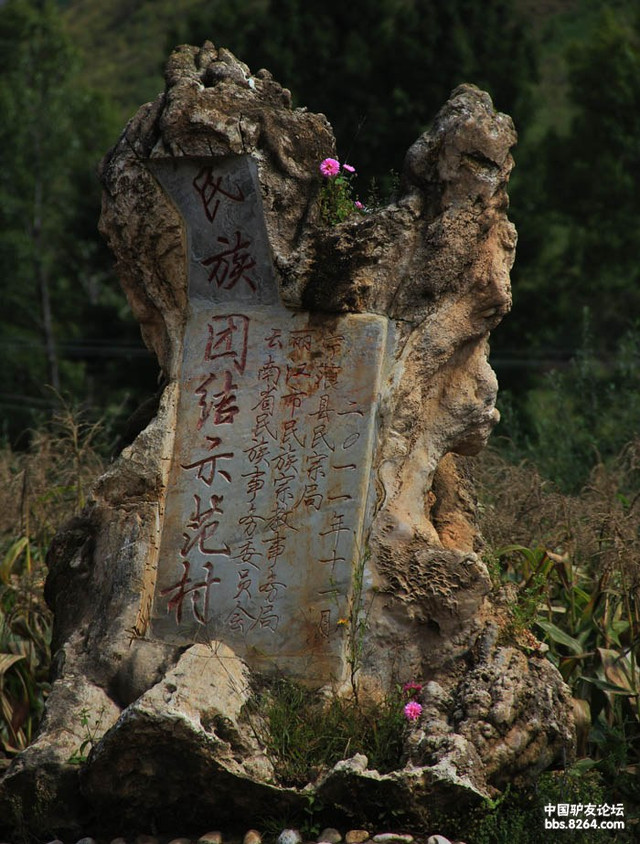 民族团结示范村
云南省民族事务委员会
丽江市民族宗教事务局
宁蒗县民宗局
二〇一一年十一月
中国驴友论坛
bbs.8264.com